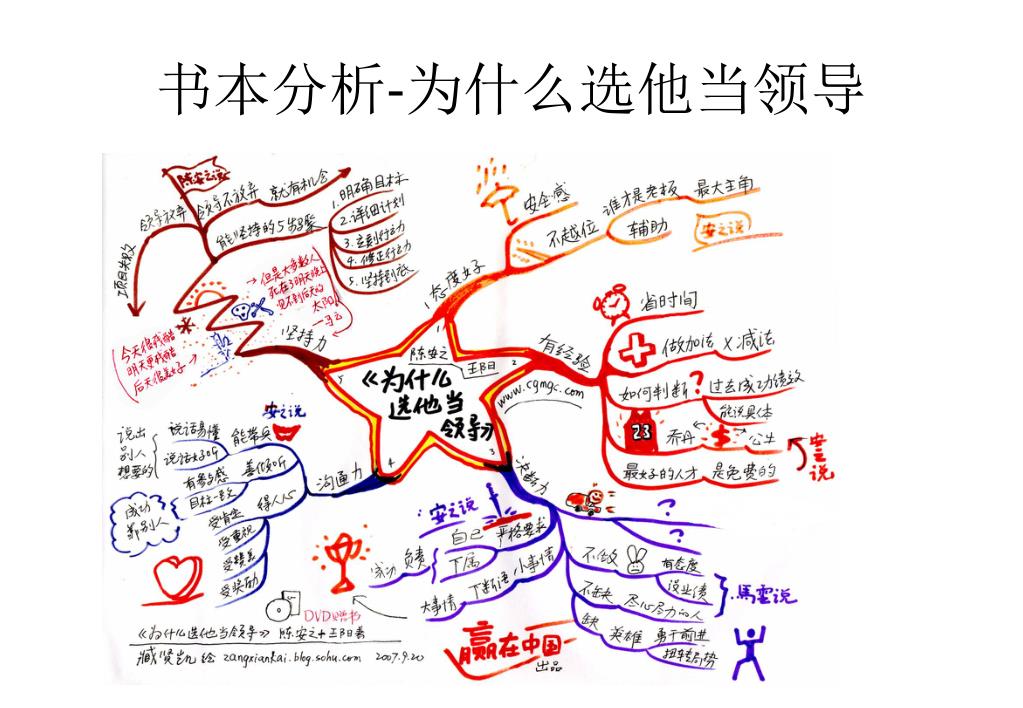 书本分析-为什么选他当领导
陈安之说
领导放弃
项目失败
领导不放弃 就有机会
能坚持的5步骤
1.明确目标
2.详细计划
3.立刻行动
4.修正行动
5.坚持到底
但是大多数人
死在了明天晚上
见不到后天的
太阳
—马云
今天很残酷
明天更残酷
后天很美好
坚持力
5
1
态度好
安全感
不越位
谁才是老板 最大主角
辅助
安之说
陈安之
王阳
《为什么
选他当
领导》
www.cgmgc.com
2
有经验
省时间
做加法 X减法
如何判断?过去成功绩效
能说具体
23
乔丹
$
公牛
最好的人才 是免费的
安之说
3
决断力
?
?
不做
有态度
没业绩
不缺 尽心尽力的人
缺 英雄 勇于前进
扭转局势
馬雲说
安之说
自己 严格要求
下属
成功 负责
小事情
下断语
大事情
赢在中国
出品
4
沟通力
安之说
能带兵
说话易懂
说话好听
说出
别人
想要的
善倾听
有参与感
目标一致
得人心
成功
靠别人
受肯定
受重视
受赞美
受奖励
DVD
《为什么选他当领导》 陈安之+王阳著
臧贤凯 绘 zangxiankai.blog.sohu.com 2007.9.20